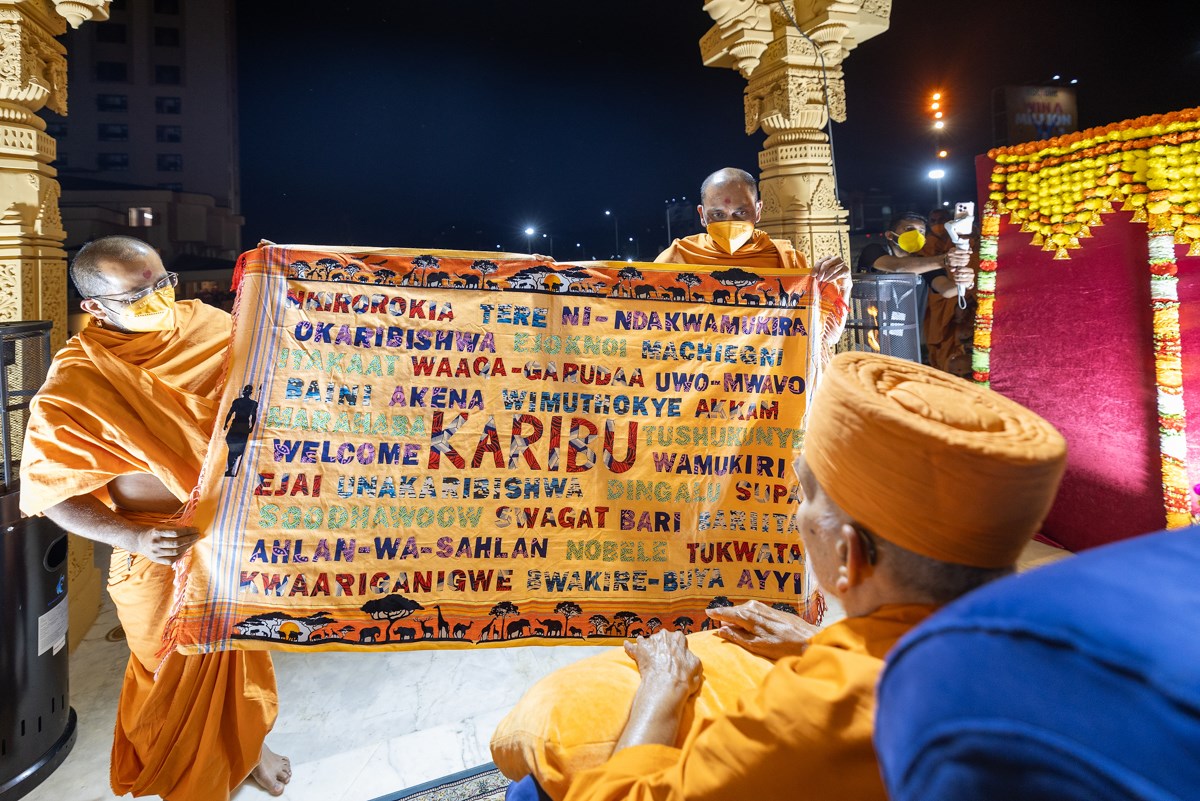 NKIROROKIA TERE NI-NDAKWAMUKIRA
OKARIBISHWA EJOKNOI MACHIEGNI
ITAKAAT WAAQA-GARUDAA UWO-MWAVO
BAINI AKENA WIMUTHOKYE AKKAM
MARAHABA KARIBU TUSHUKUNYE
WELCOME WAMUKIRI
EJAI UNAKARIBISHWA DINGALU SUPA
SOODHAWOOW SWAGAT BARI KARIITA
AHLAN-WA-SAHLAN NOBELE TUKWATA
KWAARIGANIGWE BWAKIRE-BUYA AYYI